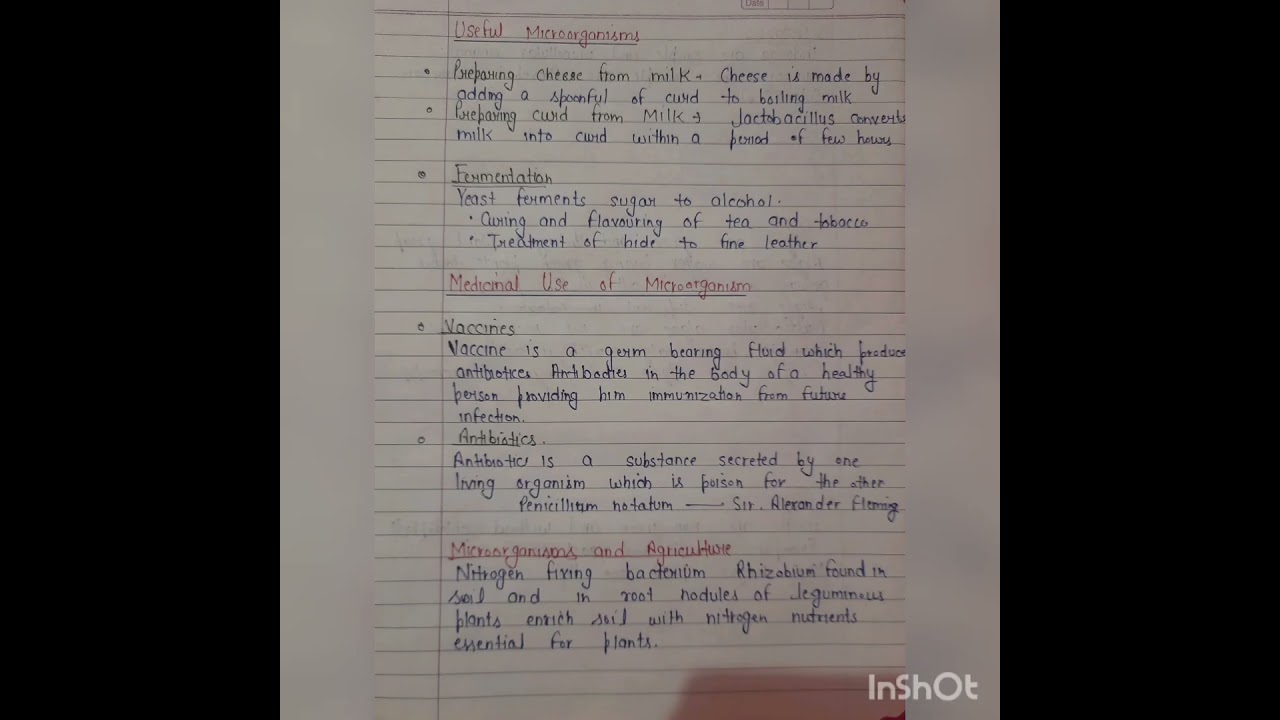 Date
Useful Microorganisms
Preparing cheese from milk → Cheese is made by
adding a spoonful of curd to boiling milk
Preparing curd from Milk → Lactobacillus converts
milk into curd within a period of few hours
Fermentation
Yeast ferments sugar to alcohol.
• Curing and flavouring of tea and tobacco
• Treatment of hide to fine leather
Medicinal Use of Microorganism
Vaccines
Vaccine is a germ bearing fluid which produce
antibiotices Antibodies in the body of a healthy
person providing him immunization from future
infection.
Antibiotics.
Antibiotic is a substance secreted by one
living organism which is poison for the other
Penicillium notatum — Sir. Alexander Fleming
Microorganisms and Agriculture
Nitrogen fixing bacterium Rhizobium found in
soil and in root nodules of leguminous
plants enrich soil with nitrogen nutrients
essential for plants.
InShOt